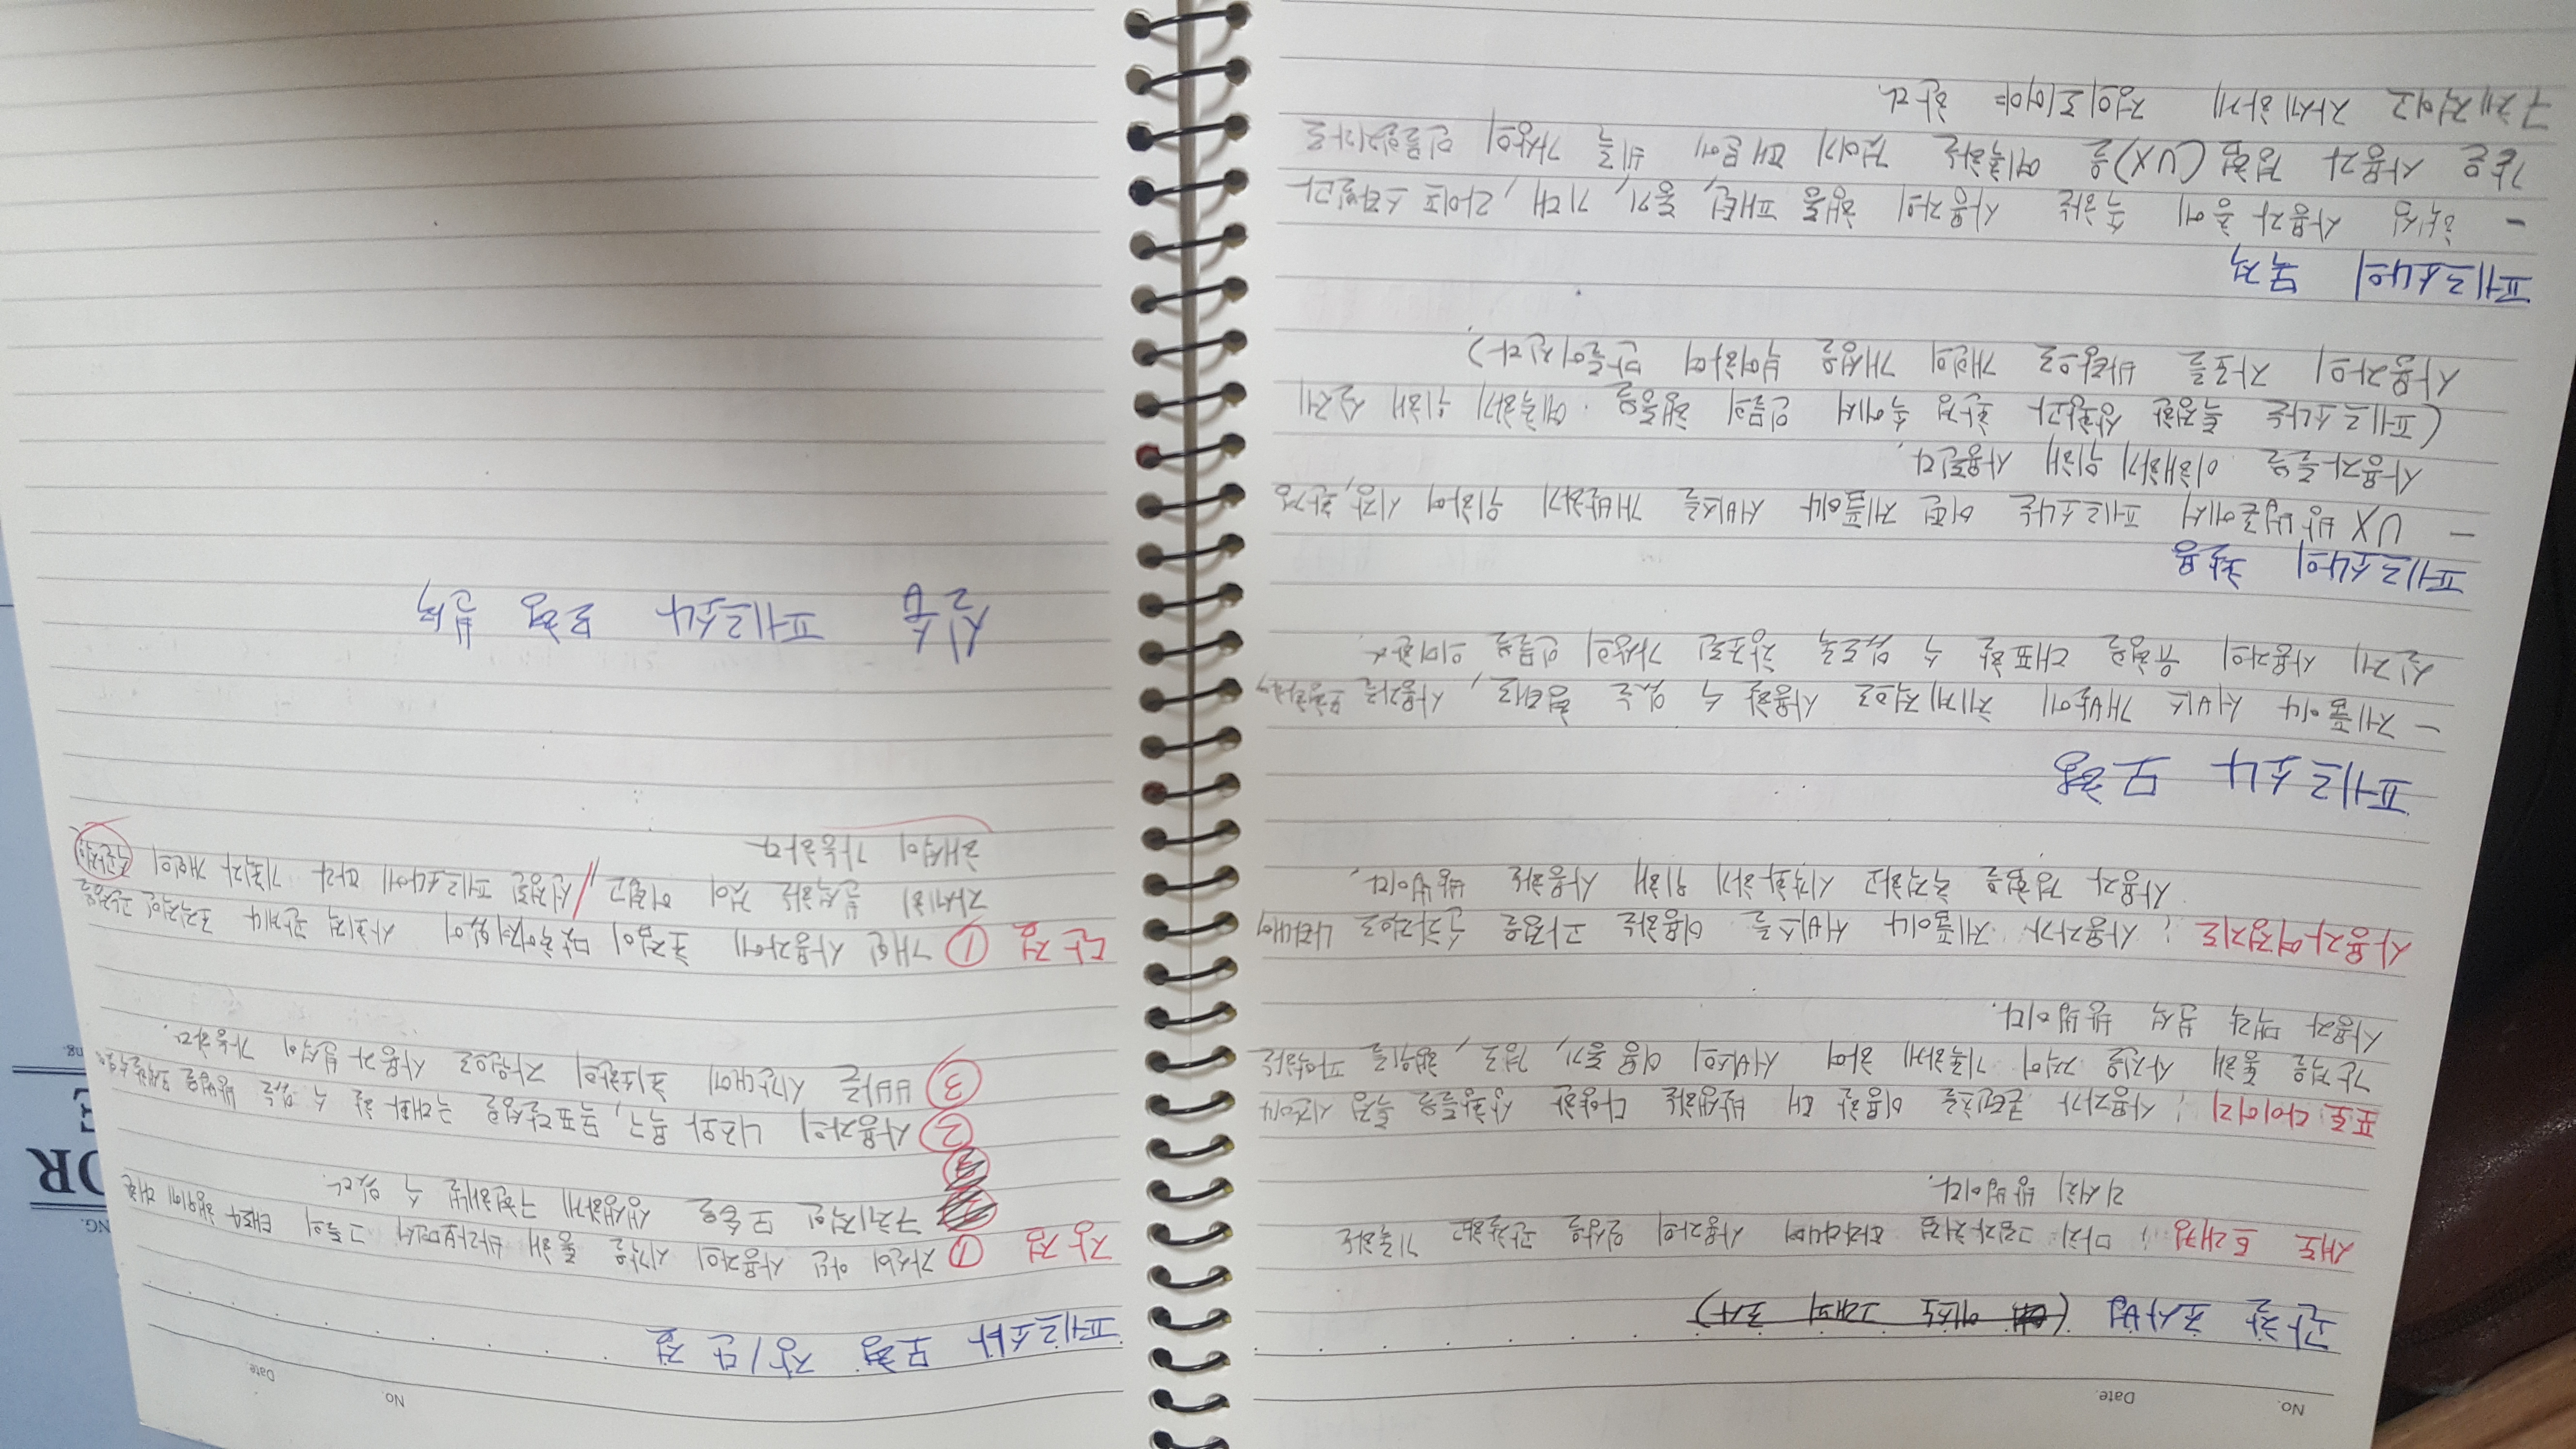 No.
Date.
관찰 조사법 (에스노 그래피 조사)
섀도 트래킹 ; 마치 그림자처럼 따라다니며 사용자의 일상을 관찰하고 기록하는
리서치 방법이다.
포토 다이어리 ; 사용자가 콘텐츠를 이용할 때 발생하는 다양한 상황들을 특정 시간이나
간격을 통해 사진을 찍어 기록하게 하며 서비스의 이용 동기, 경로, 행위를 파악하는
사용자 맥락 분석 방법이다.
사용자여정지도 ; 사용자가 제품이나 서비스를 이용하는 과정을 순차적으로 나타내어
사용자 경험을 추적하고 시각화하기 위해 사용하는 방법이다.
페르소나 모형
- 제품이나 서비스 개발에 체계적으로 사용할 수 있는 형태로, 사용자를 모형화하여
실제 사용자의 유형을 대표할 수 있도록 창조된 가상의 인물을 의미한다.
페르소나의 활용
- UX 방법론에서 페르소나는 어떤 제품이나 서비스를 개발하기 위하여 시장, 환경
사용자들을 이해하기 위해 사용된다.
(페르소나는 특정한 상황과 환경 속에서 인물의 행동을 예측하기 위해 실제
사용자의 자료를 바탕으로 개인의 개성을 부여하며 만들어진다)
페르소나의 목적
- 핵심 사용자 층에 속하는 사용자의 행동 패턴, 동기, 기대, 라이프 스타일과
같은 사용자 경험(UX)을 예측하는 것이기 때문에 비록 가상의 인물일지라도
구체적이고 자세하게 정의되어야 한다.
No.
Date
페르소나 모형 장/단점
장점 ① 자신이 아닌 사용자의 시각을 통해 바라보면서 그들의 태도나 행위에 대한
구체적인 모습을 생생하게 구현해낼 수 있다.
② 사용자의 니즈와 욕구, 목표달성을 극대화 할 수 있는 방법을 모색할 수 있다
③ 빠른 시간대에 최소한의 자원으로 사용자 분석이 가능하다.
단점 ① 개인 사용자에 초점이 맞추어져있어 사회적 관계나 조직적인 관점을
자세히 분석하는 것이 어렵고, / 선정된 페르소나에 따라 기획자 개인의 주관적인
해석이 가능하다
실습 페르소나 모형 분석
NG.
OR
E
ng.